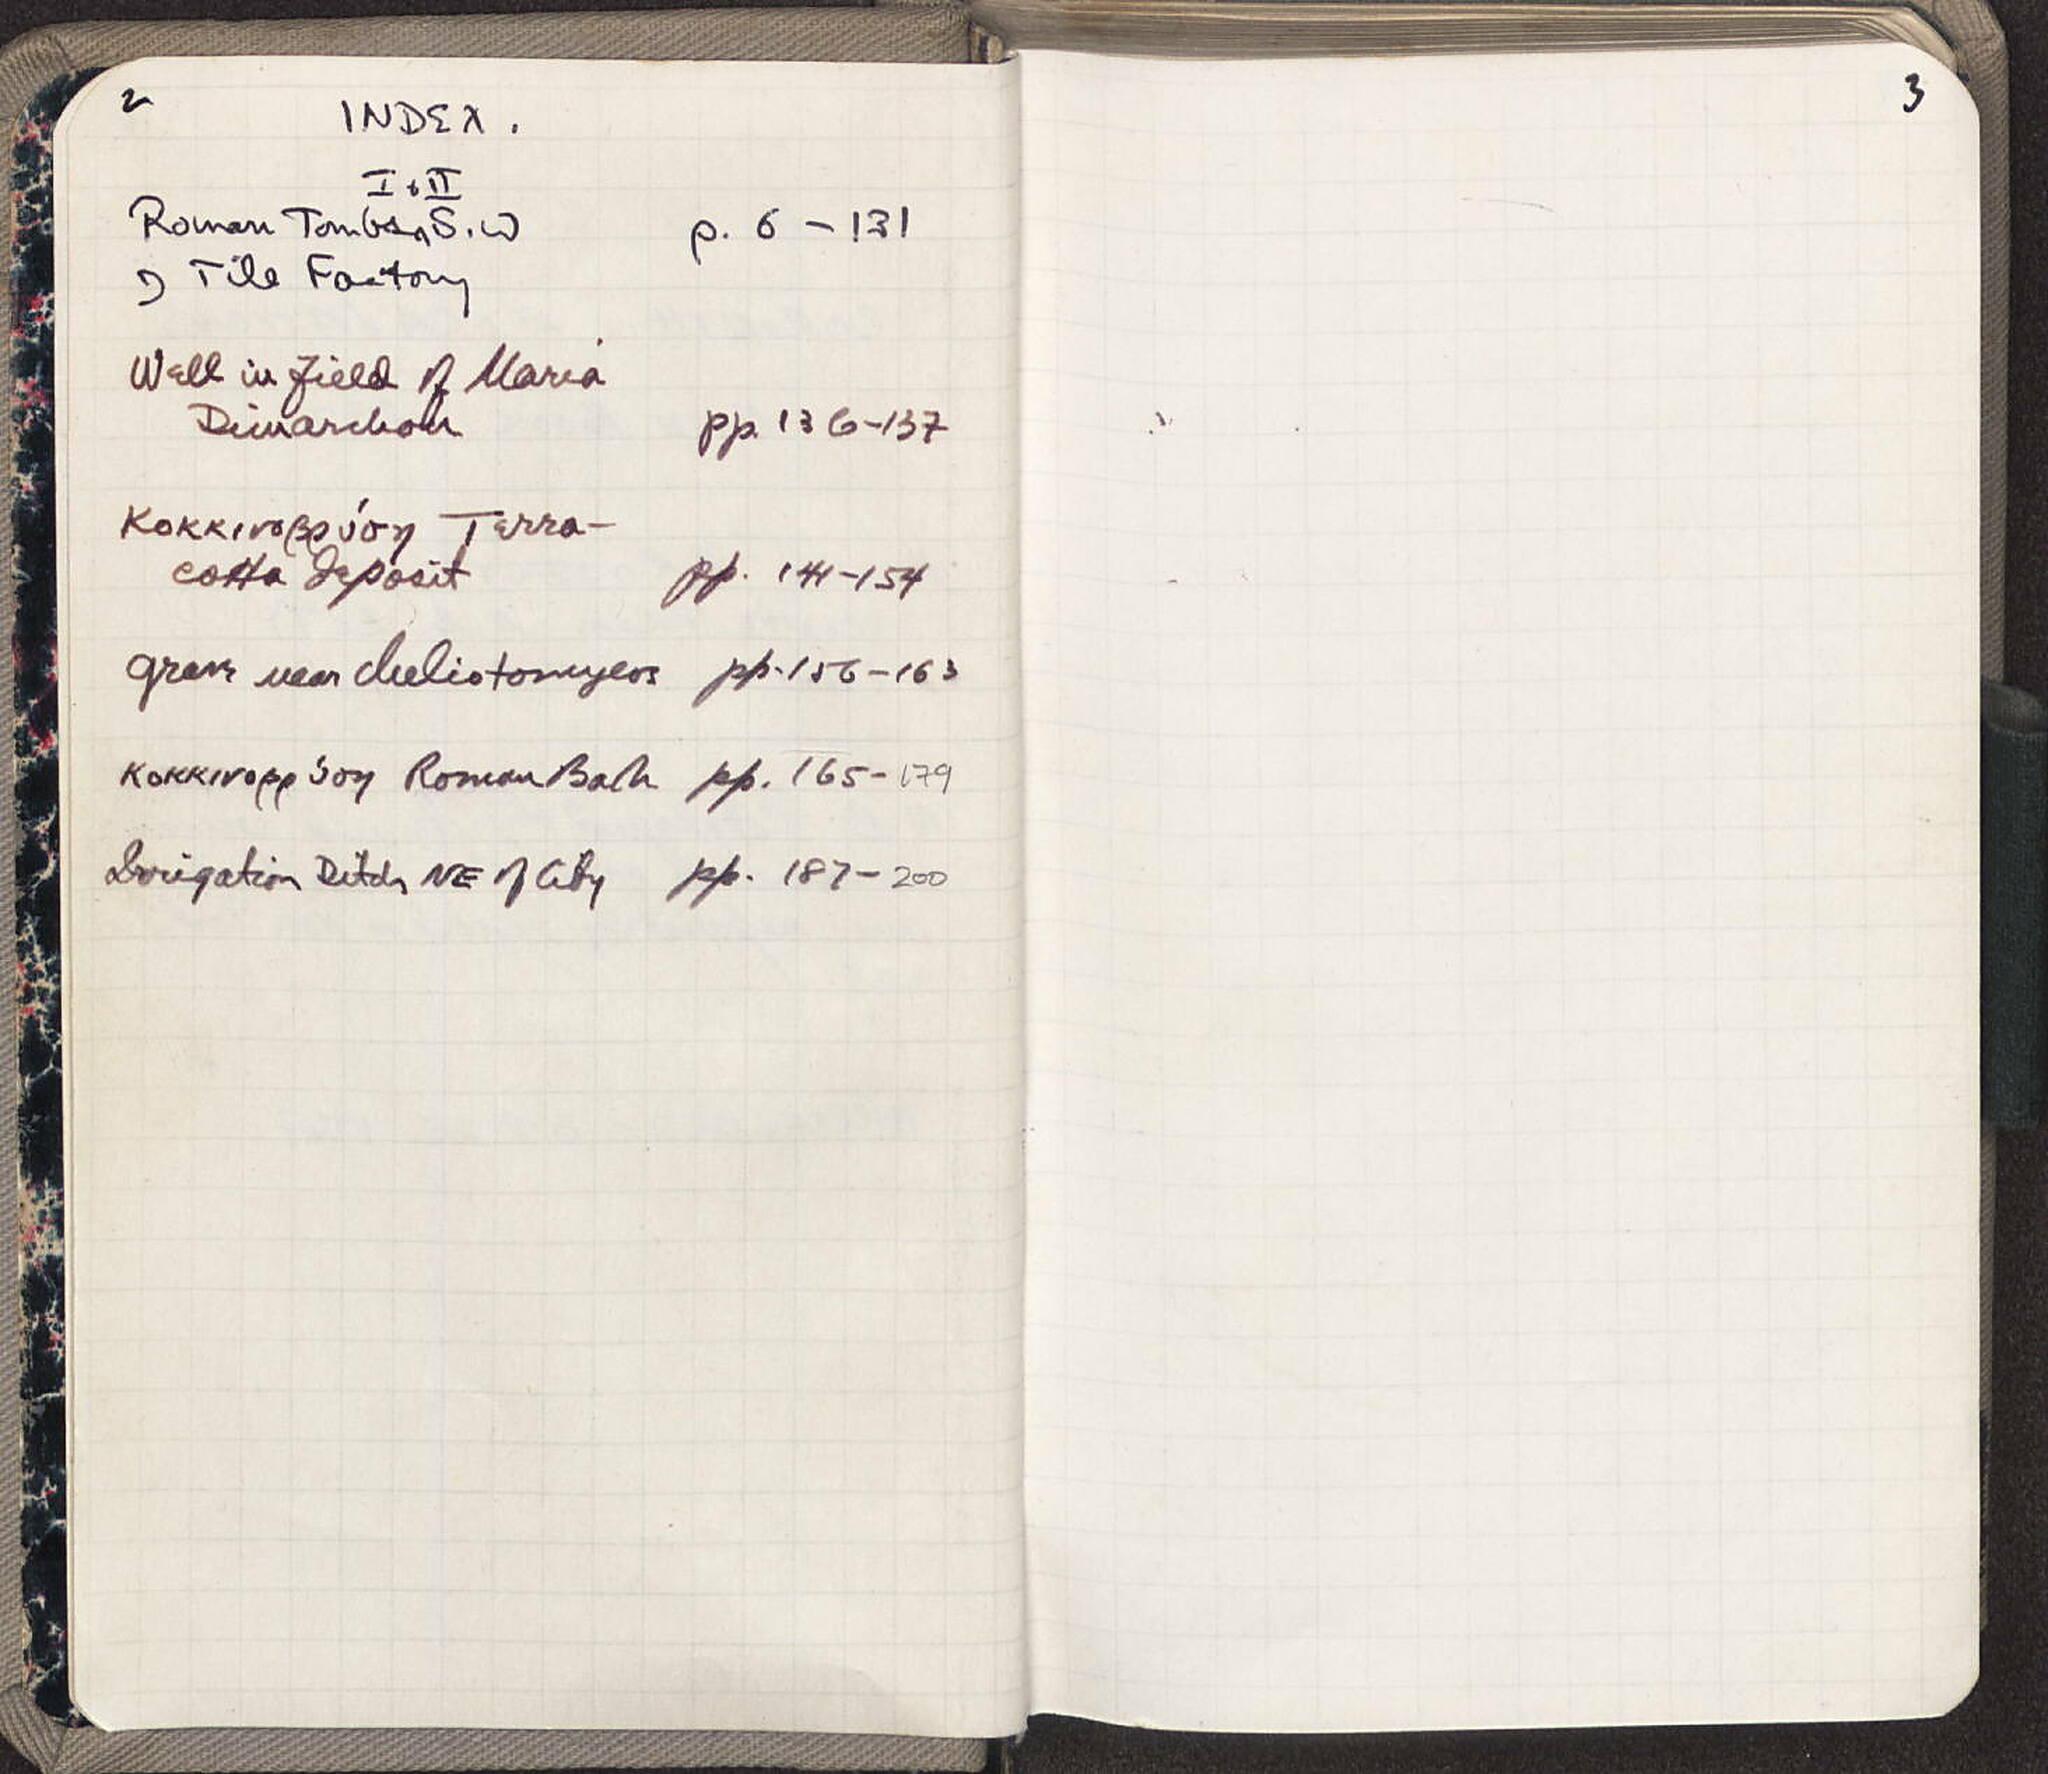 2
INDEX.
I & II
Roman Tombs, S.W
of Tile Factory
p. 6 – 131
Well in field of Maria
Dimarchou pp. 136–137
Κοκκινοβρύση Terra-
cotta deposit pp. 141–154
Grave near Cheliotomylos pp. 156–163
Κοκκινοβρύση Roman Bath pp. 165–179
Irrigation Ditch NE of City pp. 187–200
3